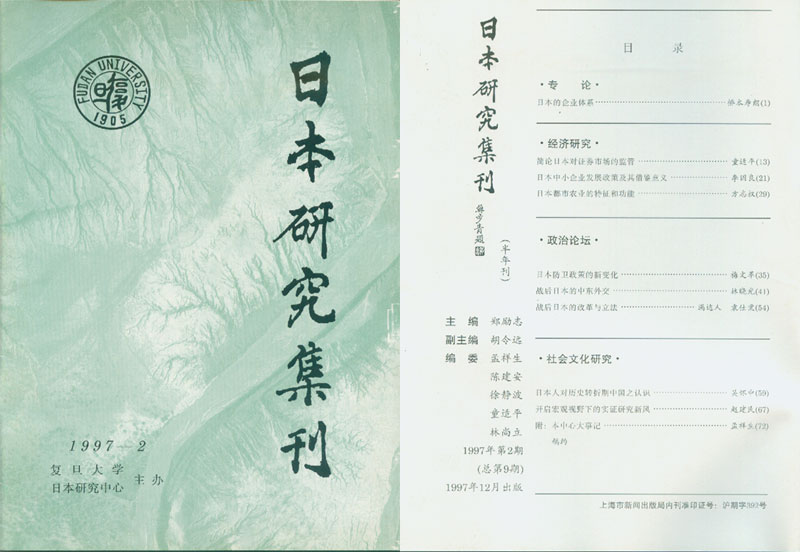 FUDAN UNIVERSITY
1905
日本研究集刊
1997—2
复旦大学
日本研究中心
主办
日本研究集刊
苏步青题
(半年刊)
主编 郑励志
副主编 胡令远
编委 孟祥生
陈建安
徐静波
童适平
林尚立
1997年第2期
(总第9期)
1997年12月出版
目 录
·专 论·
日本的企业体系 (1)
·经济研究·
简论日本对证券市场的监管 童适平(13)
日本中小企业发展政策及其借鉴意义 李国良(21)
日本都市农业的特征和功能 方志权(29)
·政治论坛·
日本防卫政策的新变化 (35)
战后日本的中东外交 林晓光(41)
战后日本的改革与立法 冯达人 袁仕荣(54)
·社会文化研究·
日本人对历史转折期中国之认识 (59)
开启宏观视野下的实证研究新风 赵建民(67)
附:本中心大事记 孟祥生(72)
上海市新闻出版局内刊准印证号:沪期字393号